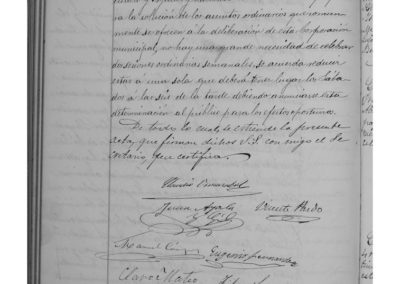 ra la solución de los asuntos ordinarios que comun
mente se ofrecen a la deliberación de esta Corporación
municipal, no hay una grande necesidad de celebrar
dos sesiones ordinarias semanales, se acuerda reducir
estas á una sola que deberá tener lugar los Sába
dos á las seis de la tarde debiendo anunciarse esta
determinación al público para los efectos oportunos.
De todo lo cual, se estiende la presente
acta, que firman dichos S.S. con migo el Se
cretario, que certifico.
Juan Ayala
y Gil
Vicente Pardo
Manuel
Eugenio Fernandez
Mateo